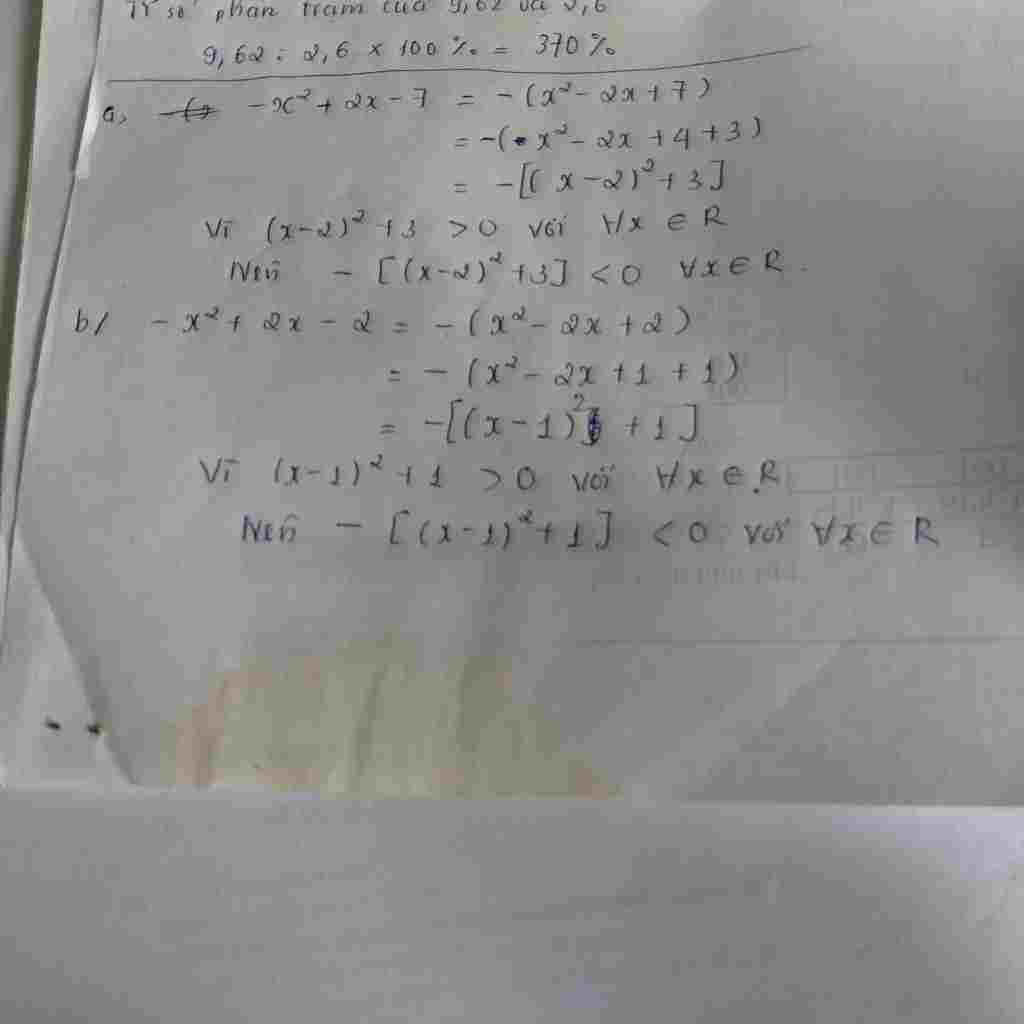 Tỉ số phần trăm của 9,62 và 2,6
9,62 : 2,6 x 100 % = 370 %
a, -x² + 2x - 7 = -(x² - 2x + 7)
= -(x² - 2x + 4 + 3)
= -[(x-2)² + 3]
Vì (x-2)² + 3 > 0 với ∀x ∈ R
Nên - [(x-2)² + 3] < 0 ∀x ∈ R.
b/ - x² + 2x - 2 = - (x² - 2x + 2)
= - (x² - 2x + 1 + 1)
= -[(x - 1)² + 1]
Vì (x-1)² + 1 > 0 với ∀x ∈ R
Nên - [(x-1)² + 1] < 0 với ∀x ∈ R